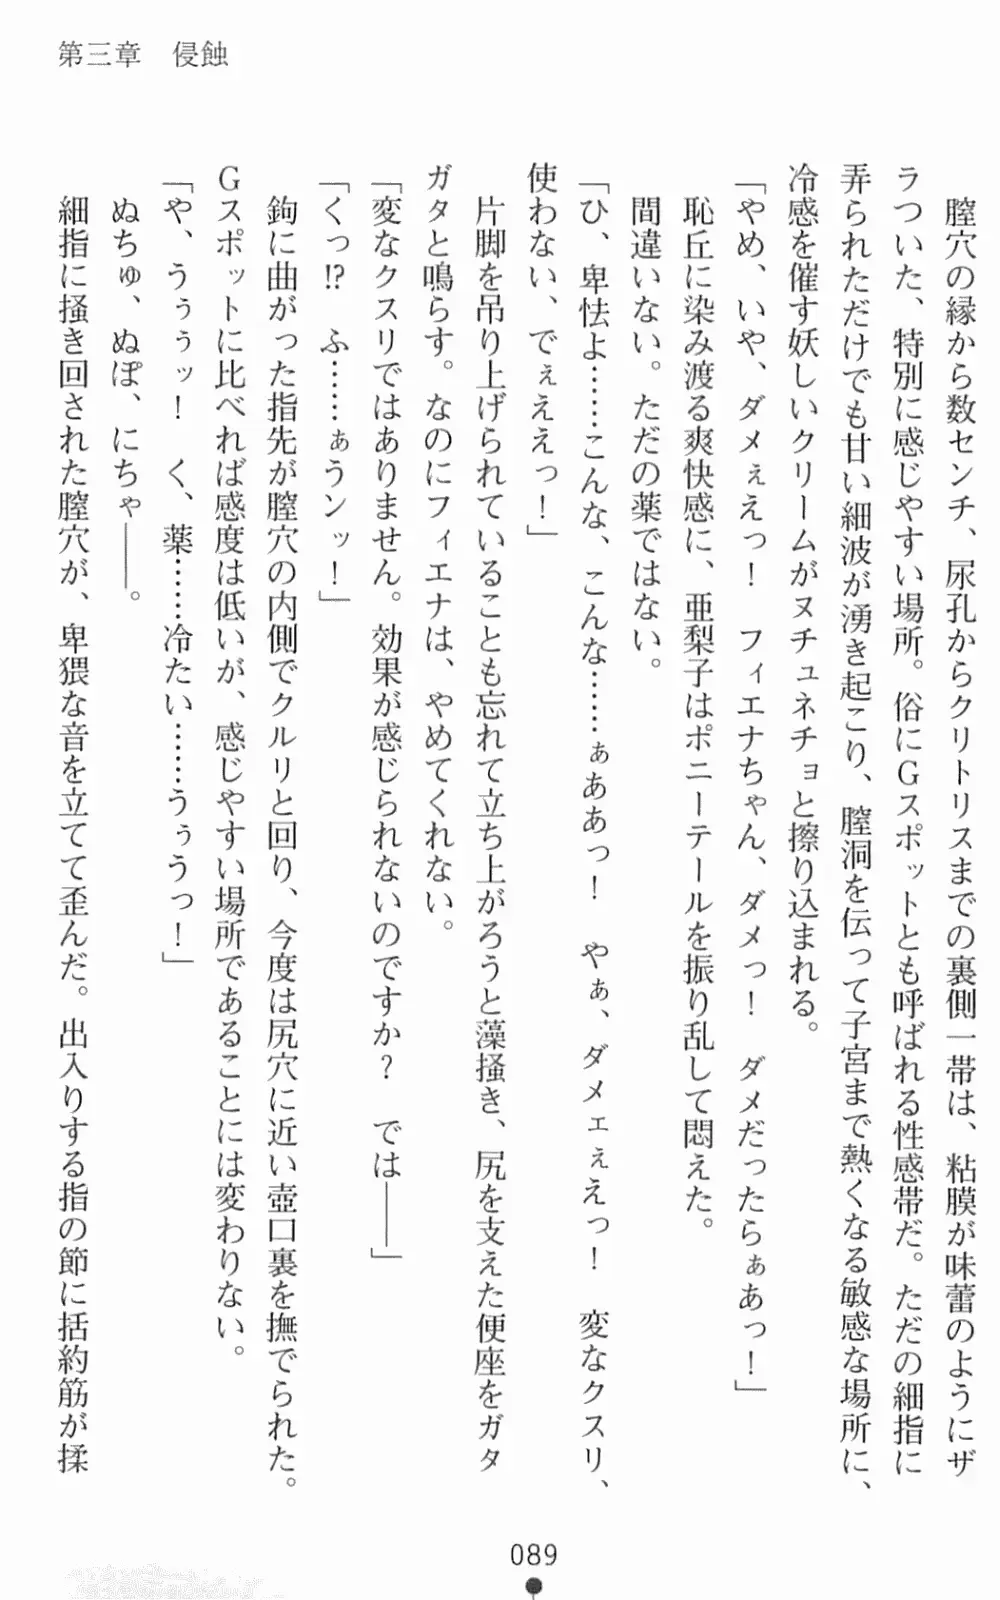 第三章　侵蝕
膣穴の縁から数センチ、尿孔からクリトリスまでの裏側一帯は、粘膜が味蕾のようにザ
ラついた、特別に感じやすい場所。俗にGスポットとも呼ばれる性感帯だ。ただの細指に
弄られただけでも甘い細波が湧き起こり、膣洞を伝って子宮まで熱くなる敏感な場所に、
冷感を催す妖しいクリームがヌチュネチョと擦り込まれる。
「やめ、いや、ダメぇえっ！　フィエナちゃん、ダメっ！　ダメだったらぁあっ！」
恥丘に染み渡る爽快感に、亜梨子はポニーテールを振り乱して悶えた。
間違いない。ただの薬ではない。
「ひ、卑怯よ……こんな、こんな……ぁああっ！　やぁ、ダメェぇえっ！　変なクスリ、
使わない、でぇええっ！」
片脚を吊り上げられていることも忘れて立ち上がろうと藻掻き、尻を支えた便座をガタ
ガタと鳴らす。なのにフィエナは、やめてくれない。
「変なクスリではありません。効果が感じられないのですか？　では――」
「くっ!?　ふ……ぁうンッ！」
鉤に曲がった指先が膣穴の内側でクルリと回り、今度は尻穴に近い壺口裏を撫でられた。
Gスポットに比べれば感度は低いが、感じやすい場所であることには変わりない。
「や、うぅぅッ！　く、薬……冷たい……うぅうっ！」
ぬちゅ、ぬぽ、にちゃ――。
細指に掻き回された膣穴が、卑猥な音を立てて歪んだ。出入りする指の節に括約筋が揉
089